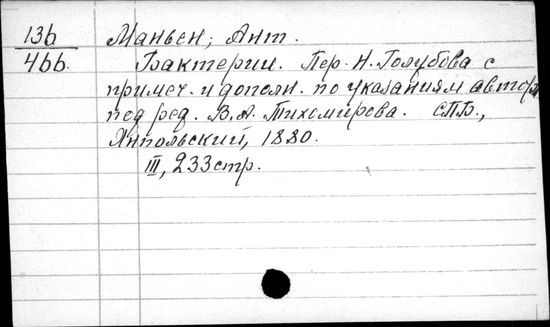 136
466
Маньен, Ант.
Бактерии. Пер. Н. Голубова с
примеч. и дополн. по указаниям автора
под ред. В. А. Тихомирова. СПБ.,
Ямпольский, 1880.
III, 233 стр.